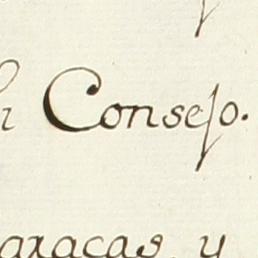 Consejo.
aracas, y